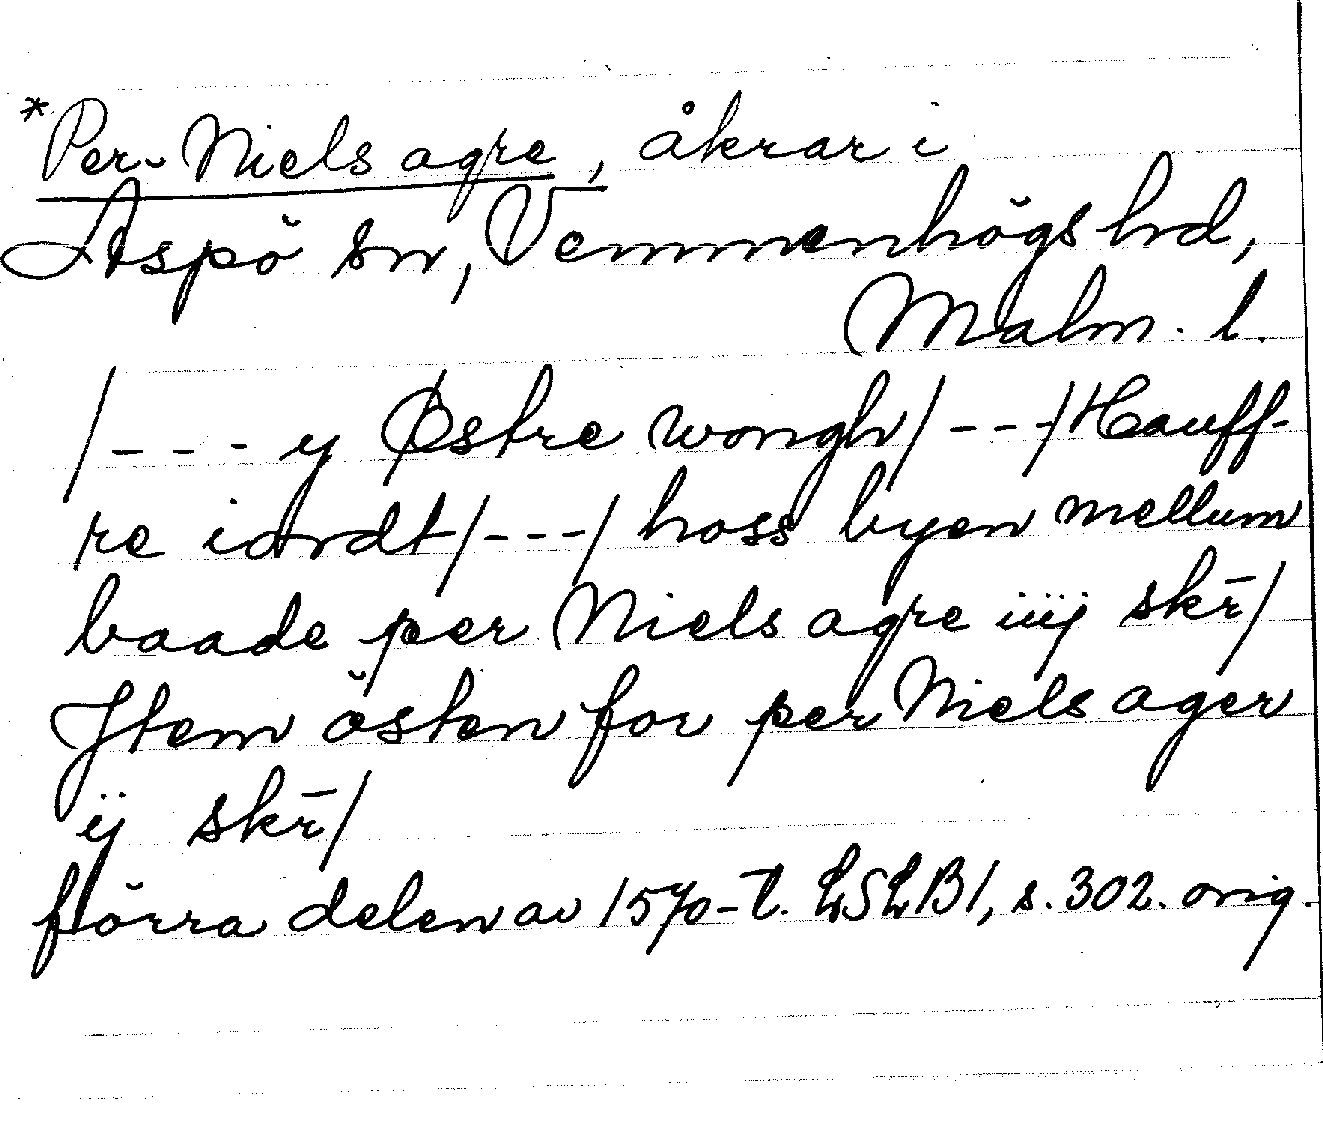 *Per Niels agre, åkrar i
Aspö sn, Vemmenhögs hd,
Malm. l.
/--- y Østre wongh/---/Hauff-
re iordt/---/ hoss byen mellum
baade per Niels agre iiij skr̄/
Jtem östen for per Niels ager
ij skr̄/
förra delen av 1570-t. LSLB1, s. 302. orig.